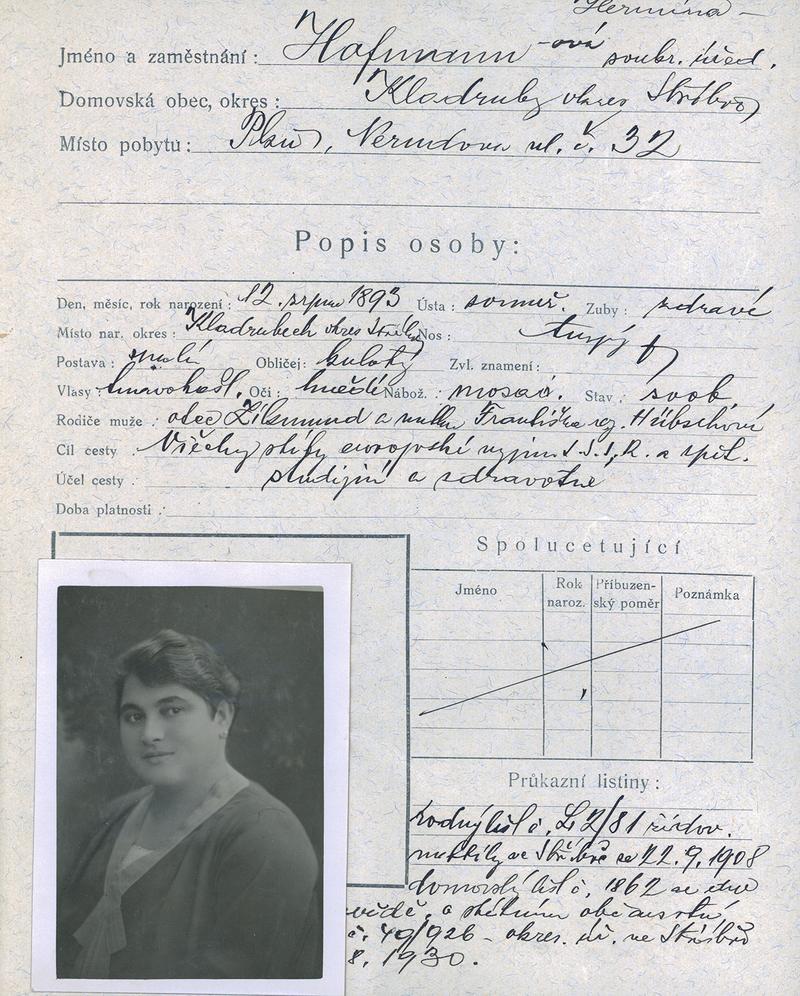 Hermína –
Jméno a zaměstnání: Hofmann -ová soukr. úřed.
Domovská obec, okres: Kladruby okres Stříbro
Místo pobytu: Plzeň, Nerudova ul. č. 32
Popis osoby:
Den, měsíc, rok narození: 12. srpna 1893 Ústa: souměř. Zuby: zdravé
Místo nar. okres: Kladrubech okres Stříbro Nos: tupý
Postava: malá Obličej: kulatý Zvl. znamení:
Vlasy: tmavokašt. Oči: hnědé Nábož.: mosaic. Stav: svob.
Rodiče muže: otec Zikmund a matka Františka roz. Hübschová
Cíl cesty Všechny státy evropské vyjma S.S.S.R. a zpět.
Účel cesty studijní a zdravotné
Doba platnosti:
Spolucetující
Jméno Rok naroz. Příbuzenský poměr Poznámka
Průkazní listiny:
rodný list č. L 2/81 židov.
matriky ve Stříbře ze 22.9.1908
domovský list č. 1862 se
o státním občanství,
č. 49/926 – okres. úř. ve Stříbře
8. 1930.